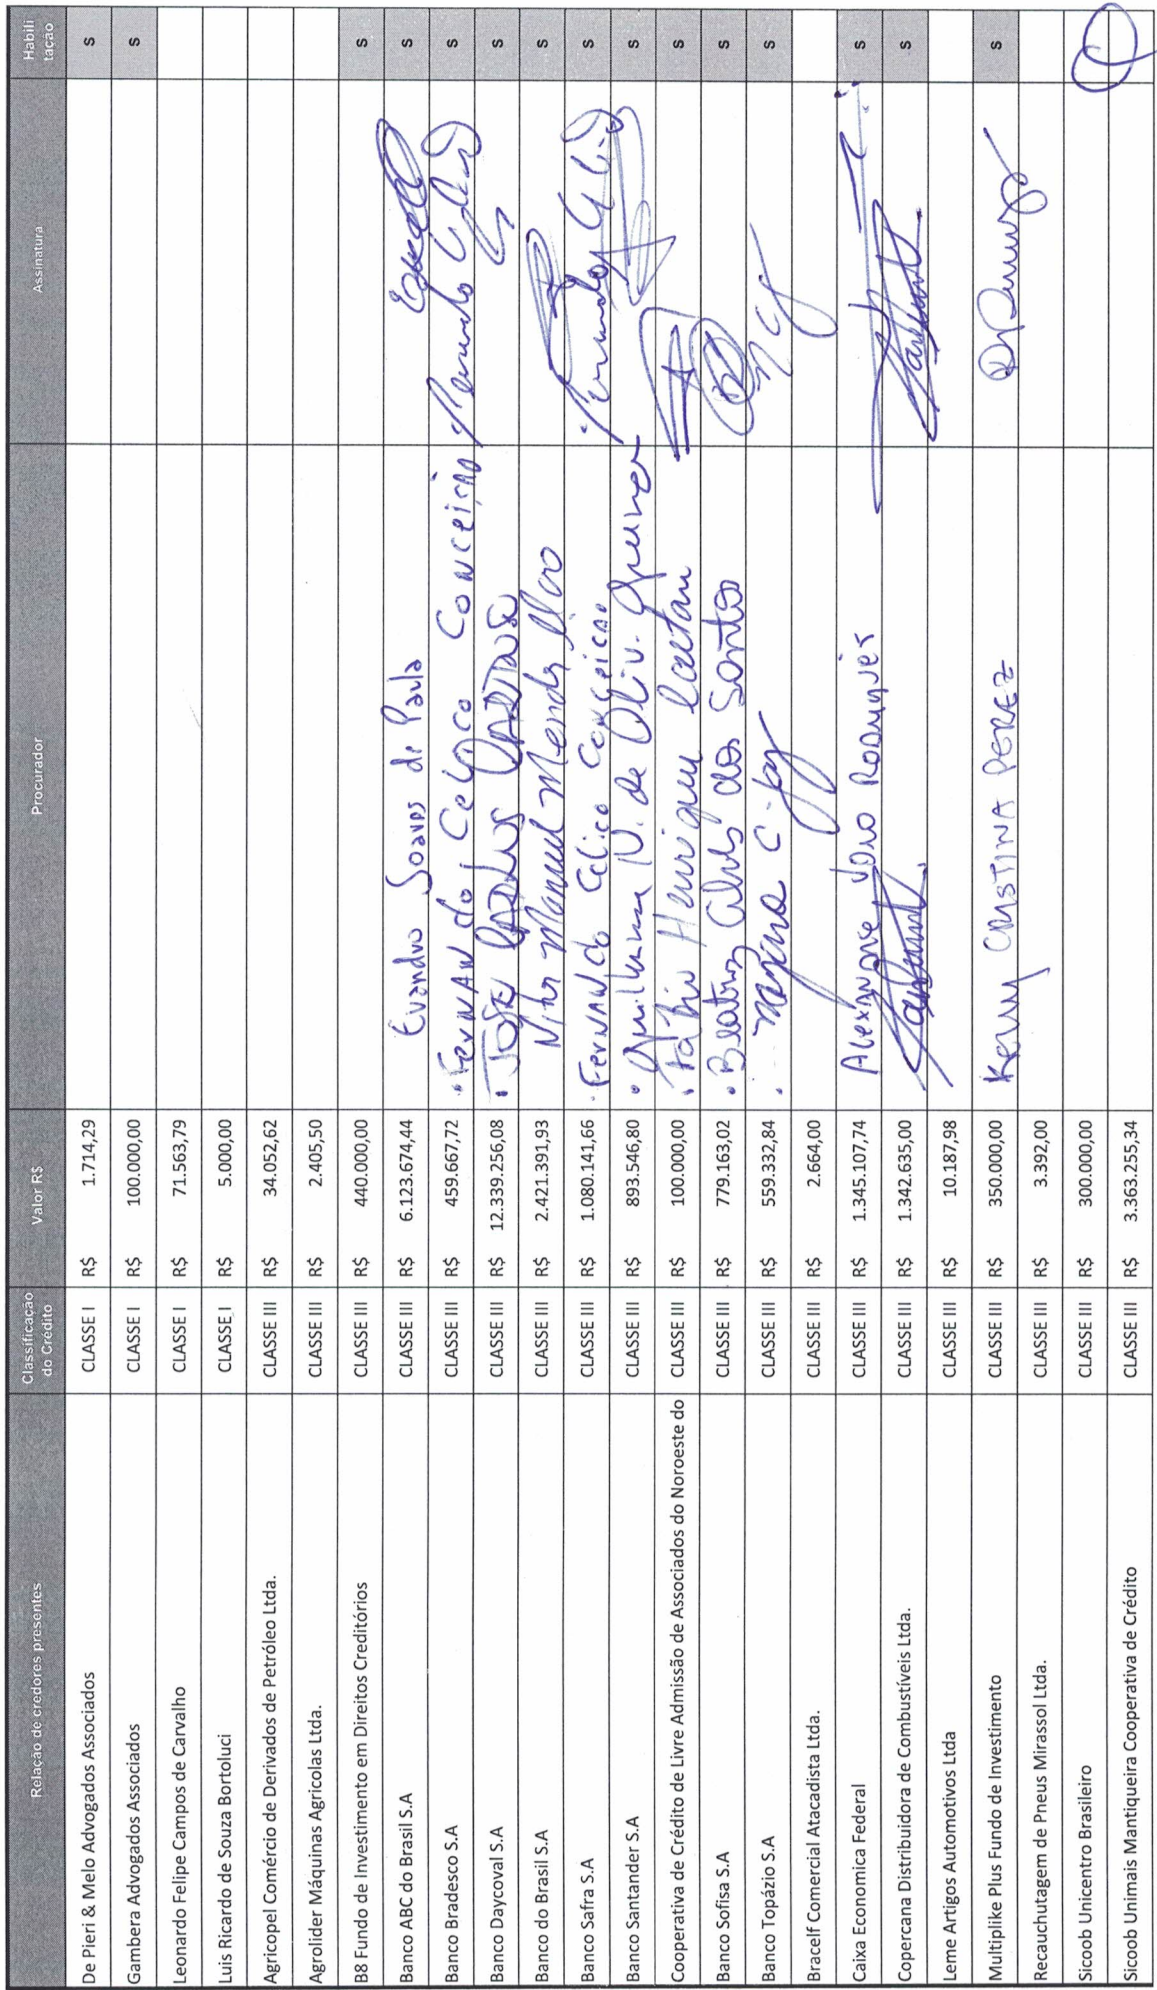 Relação de credores presentes Classificação do Crédito Valor R$ Procurador Assinatura Habili tação
De Pieri & Melo Advogados Associados CLASSE I R$ 1.714,29 s
Gambera Advogados Associados CLASSE I R$ 100.000,00 s
Leonardo Felipe Campos de Carvalho CLASSE I R$ 71.563,79
Luis Ricardo de Souza Bortoluci CLASSE I R$ 5.000,00
Agricopel Comércio de Derivados de Petróleo Ltda. CLASSE III R$ 34.052,62
Agrolider Máquinas Agricolas Ltda. CLASSE III R$ 2.405,50
B8 Fundo de Investimento em Direitos Creditórios CLASSE III R$ 440.000,00 s
Banco ABC do Brasil S.A CLASSE III R$ 6.123.674,44 Evandro Soares de Paula s
Banco Bradesco S.A CLASSE III R$ 459.667,72 Fernando Celico Conceição s
Banco Daycoval S.A CLASSE III R$ 12.339.256,08 José Carlos s
Banco do Brasil S.A CLASSE III R$ 2.421.391,93 Manuel s
Banco Safra S.A CLASSE III R$ 1.080.141,66 Fernando Celico Conceicao s
Banco Santander S.A CLASSE III R$ 893.546,80 Guilherme N. de Oliv. s
Cooperativa de Crédito de Livre Admissão de Associados do Noroeste do CLASSE III R$ 100.000,00 Fabio Henrique s
Banco Sofisa S.A CLASSE III R$ 779.163,02 Beatriz Alves dos Santos s
Banco Topázio S.A CLASSE III R$ 559.332,84 s
Bracelf Comercial Atacadista Ltda. CLASSE III R$ 2.664,00
Caixa Economica Federal CLASSE III R$ 1.345.107,74 Alexandre João s
Copercana Distribuidora de Combustíveis Ltda. CLASSE III R$ 1.342.635,00 s
Leme Artigos Automotivos Ltda CLASSE III R$ 10.187,98
Multiplike Plus Fundo de Investimento CLASSE III R$ 350.000,00 Kenny CRISTINA PEREZ s
Recauchutagem de Pneus Mirassol Ltda. CLASSE III R$ 3.392,00
Sicoob Unicentro Brasileiro CLASSE III R$ 300.000,00
Sicoob Unimais Mantiqueira Cooperativa de Crédito CLASSE III R$ 3.363.255,34